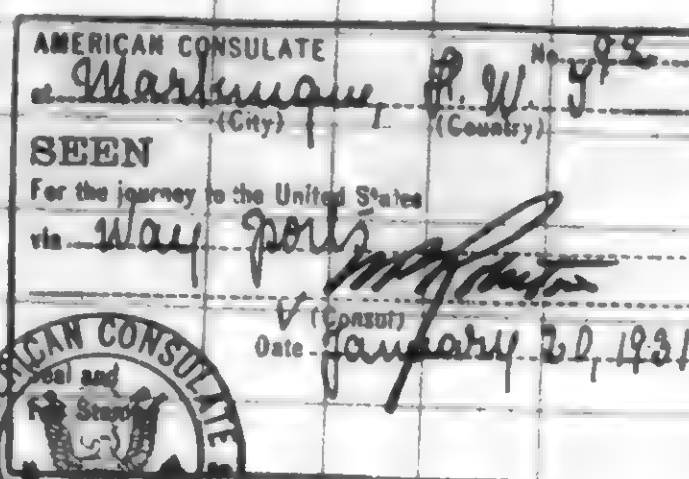 AMERICAN CONSULATE No. 92
at Martinique, F. W. I
(City) (Country)
SEEN
For the journey to the United States
via Way ports
V (Consul)
Date January 20, 1931
AMERICAN CONSULATE
Seal and
Fee Stamp